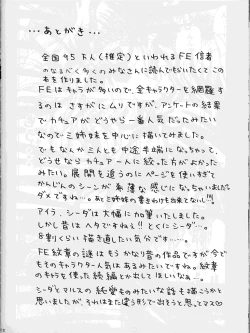 …あとがき…
全国95万人(推定)といわれるFE信者
のなるべく多くのみなさんに読んでもらいたくてこの
本を作りました。
FEはキャラが多いので、全キャラクターを網羅す
るのは さすがにムリですが、アンケートの結果
で カチュアが どうやら一番人気だったみたい
なので三姉妹を中心に描いてみました。
でもなんか三人とも中途半端になっちゃって、
どうせなら カチュア一人に絞った方がよかった
みたい。展開を追うのにページを使いすぎて
かんじんのシーンが希薄な感じになっちゃいました
ダメですね…。あと三姉妹の書きわけも出来てないし!!!
アイラ、シーダは大幅に加筆いたしました。
しかし昔はヘタですねえ!とくにシーダ…。
8割くらい描き直したい気分です‥‥。
FE紋章の謎はもうかなり昔の作品ですが今で
もそのキャラクター人気はあるみたいですね。紋章
のキャラを使った続編とか出してほしいなあ。
シーダとマルスの純愛ものみたいな話も描こうかと
思いましたが、それはまた違う形で出そうと思ってマス♡